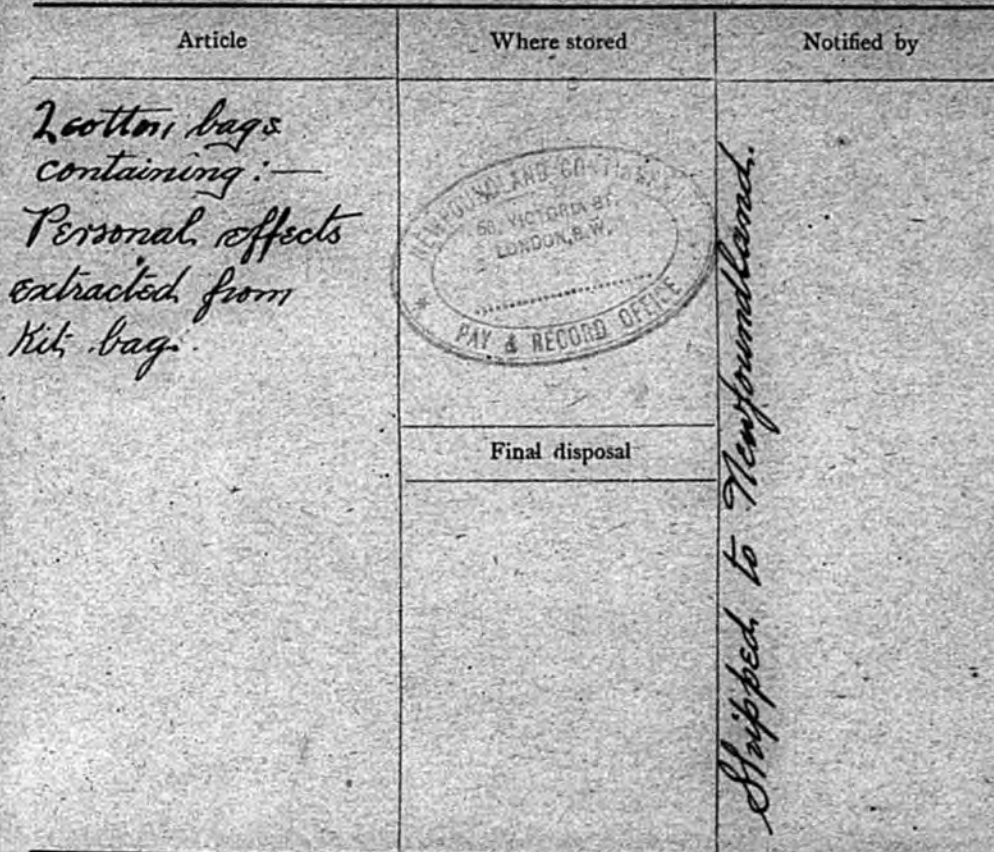 Article
Where stored
Notified by
2 cotton bags
containing:—
Personal effects
extracted from
Kit bag.
NEWFOUNDLAND CONTINGENT
58, VICTORIA ST.
LONDON, S.W.
* PAY & RECORD OFFICE
Final disposal
Shipped to Newfoundland.